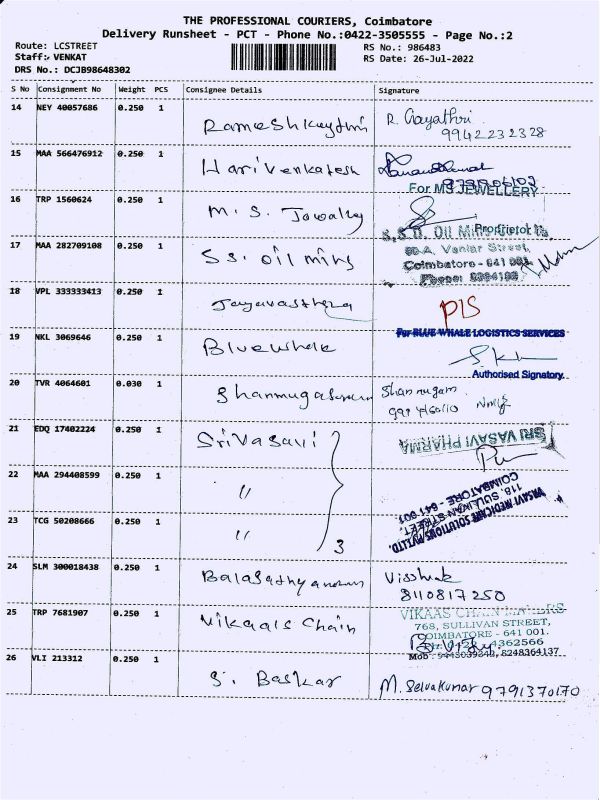 THE PROFESSIONAL COURIERS, Coimbatore
Delivery Runsheet - PCT - Phone No.:0422-3505555 - Page No.:2
Route: LCSTREET
RS No.: 986483
Staff: VENKAT
RS Date: 26-Jul-2022
DRS No.: DCJB98648302
S No Consignment No Weight PCS Consignee Details Signature
14 NEY 40057686 0.250 1 R. Gayathri
9942232328
15 MAA 566476912 0.250 1 Harivenkatesh
For MS JEWELLERY
16 TRP 1560624 0.250 1 M. S. Jowalley
Proprietor
17 MAA 282709108 0.250 1 S.S. Oil mins
S.S.D. Oil Mills
Street,
Coimbatore - 641 001.
Phone:
18 VPL 333333413 0.250 1
PIS
For BLUE WHALE LOGISTICS SERVICES
19 NKL 3069646 0.250 1 Bluewhale
Authorised Signatory.
20 TVR 4064601 0.030 1 Shanmuga Shanmugam
21 EDQ 17402224 0.250 1 Srivasavi SRI VASAVI PHARMA
22 MAA 294408599 0.250 1 "
VASAVI MEDICARE SOLUTIONS PVT LTD.
118, SULLIVAN STREET,
COIMBATORE - 641 001
23 TCG 50208666 0.250 1 " 3
24 SLM 300018438 0.250 1
8110817250
25 TRP 7681907 0.250 1 Vikaals Chain
VIKAAS CHAIN MAKERS
768, SULLIVAN STREET,
COIMBATORE - 641 001.
4362566
Mob : 8248364137
26 VLI 213312 0.250 1 S. Baskar M. Selvakumar 9791370170